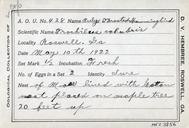 A. O. U. No. 428 Ruby Throated Hummingbird
Scientific Name Trochilus colubris
Locality Roswell, Ga
Date May 10th 1922
Set Mark 1/2 Incubation Fresh
No. of Eggs in Set 2 Identity Sure
Nest of Moss lined with Cotton
nest placed on maple tree
20 feet up
OOLOGICAL COLLECTION OF
D. V. HEMBREE, ROSWELL, GA.